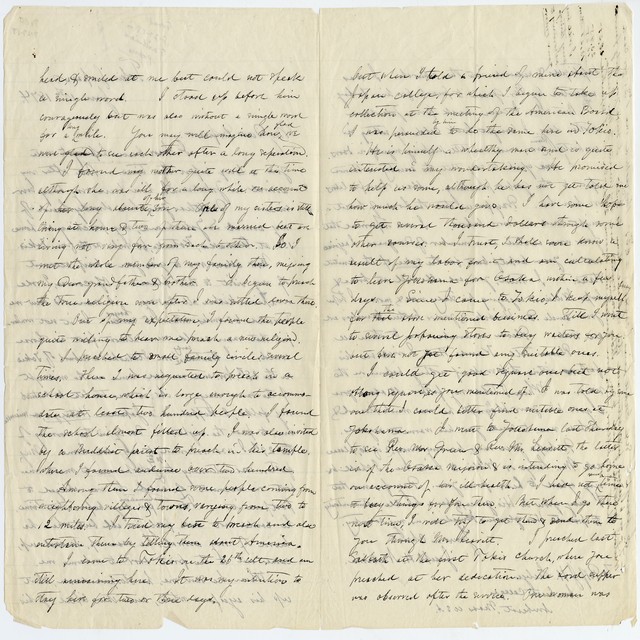 head & smiled at me but could not speak
a single word. I stood up before him
courageously but was also without a single word
for a while. You may well imagine how glad we
were to see each other after a long separation.
I found my mother quite well at this time
although she was ill for a whole on account
of her long absent son. of my sisters is still
living at home & two of them are married but are
living not very far from each other. So I
met the whole members of my family there, missing
my grandfather & brother. I begun to preach
the true religion soon after I was settled down there.
But of my expectation I found the people
quite willing to hear me preach a new religion.
I preached to small family circles several
times. Then I was requested to preach in a
school house, which is large enough to accommo-
date at least two hundred people. I found
the school almost filled up. I was also invited
by a Buddhist priest to preach in his temple,
where I found audience over two hundred.
Among them I found some people coming from
neighboring villages & towns, varying from two to
12 miles. I tried my best to preach and also
entertain them by telling them about America.
I came to Tokio on the 26th ult, and am
still remaining here. It was my intention to
stay here for two or three days,
but when I told a friend of mine about the
Japan college, for which I begun to take up
collection at the meeting of the American Board,
I was persuaded to do the same here in Tokio.
He is himself a wealthy man and is quite
interested in my undertaking. He promised
to help us some, although he has not yet told me
how much he would give. I have some hope
to get several thousand dollars through some
other sources. I trust, I shall soon know a
result of my labor for it and am calculating
to leave Yokohama for Osaka within a few
days. Since I came to Tokio, I keep myself
for the above mentioned business. Still I went
to several stores to buy for you
but have not yet found any suitable ones.
I could get good square ones but not
oblong square as you mentioned of. I was told by some
one that I could better find suitable ones at
Yokohama. I went to Yokohama last Thursday
to see Rev. Mr. Green & Rev. Mr. Leavitt, the latter
is of the Osaka Mission & is intending to go home
on account of his ill health. I had not time
to buy things for you then. But when I go there
next time, I will try to get them & send them to
you through Mr. Leavitt. I preached last
Sabbath at the first Tokio Church, where you
preached at her dedication. The Lord supper
was observed after the service. One woman was